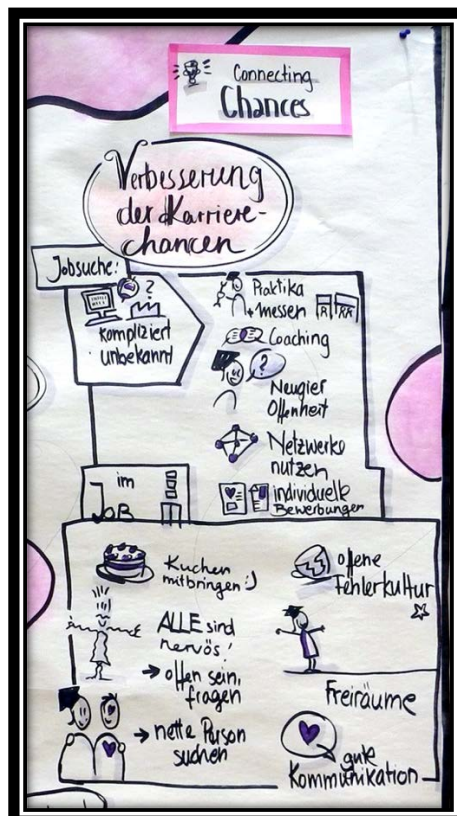 Connecting
Chances
Verbesserung
der Karriere-
chancen
Jobsuche:
?
kompliziert
unbekannt
Praktika
+ messen
Coaching
?
Neugier
Offenheit
Netzwerke
nutzen
individuelle
Bewerbungen
im
JOB
Kuchen
mitbringen :)
ALLE sind
nervös!
→ offen sein,
fragen
→ nette Person
suchen
offene
Fehlerkultur
Freiräume
gute
Kommunikation